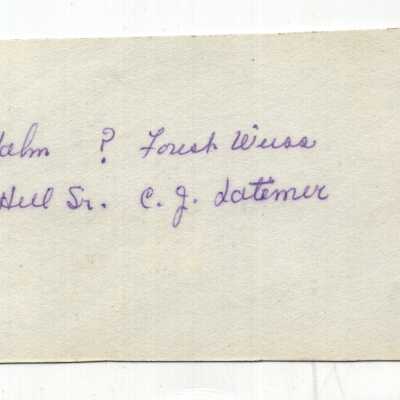 alm ? Forest Weiss
Hill Sr. C. J. Latimer